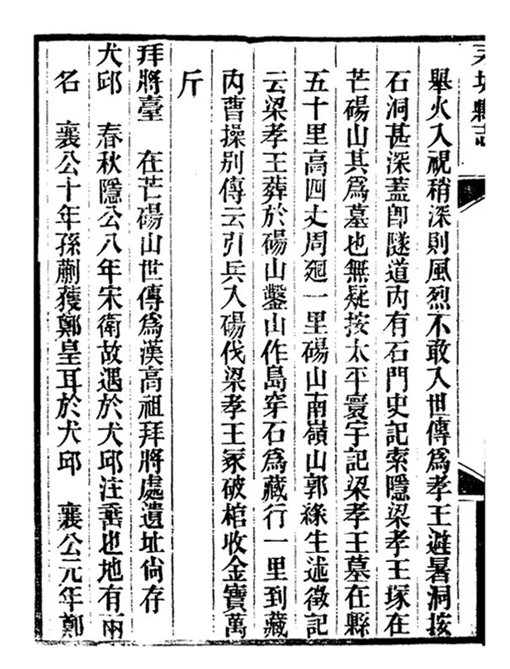 永城縣志
舉火入視稍深則風烈不敢入世傳爲孝王避暑洞按
石洞甚深蓋卽隧道內有石門史記索隱梁孝王塚在
芒碭山其爲墓也無疑按太平寰宇記梁孝王墓在縣
五十里高四丈周廻一里碭山南嶺山郭緣生述徵記
云梁孝王葬於碭山鑿山作島穿石爲藏行一里到藏
內曹操别傳云引兵入碭伐梁孝王冢破棺收金寶萬
斤
拜將臺　在芒碭山世傳爲漢高祖拜將處遺址尙存
犬邱　春秋隱公八年宋衛故遇於犬邱注垂也地有兩
名　襄公十年孫蒯獲鄭皇耳於犬邱　襄公元年鄭